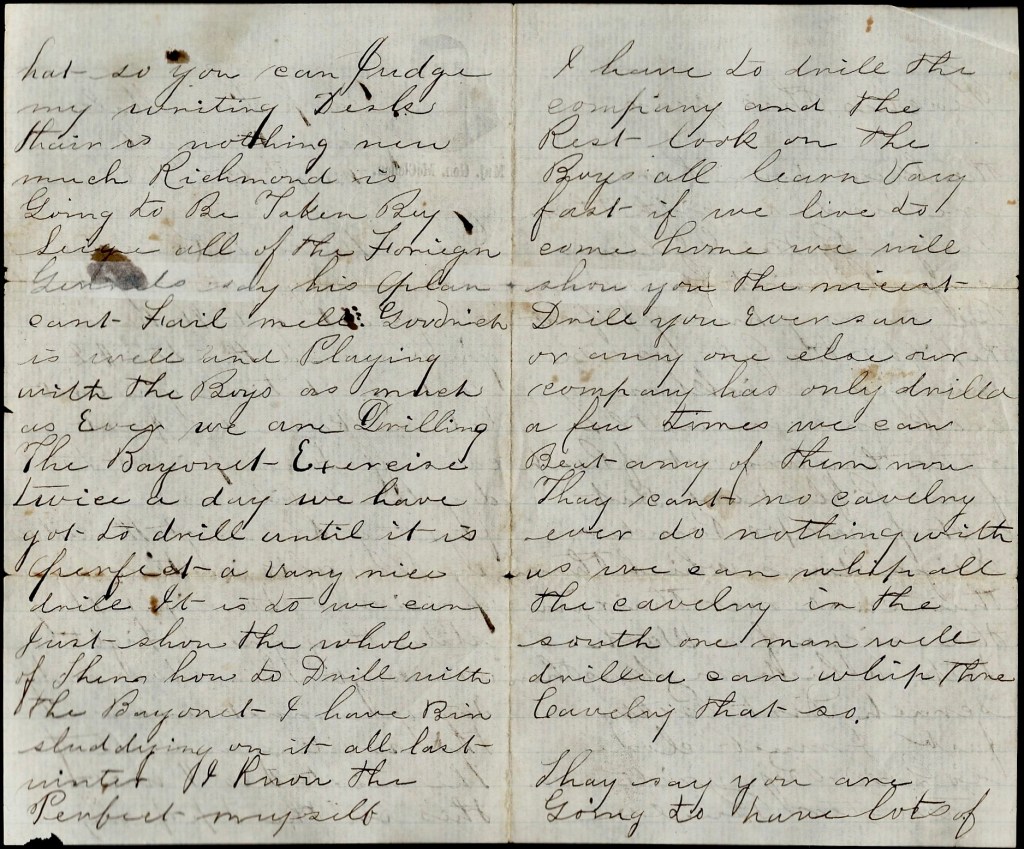 hat so you can Judge
my writing Desk
thair is nothing new
much Richmond is
Going to Be Taken By
Seige all of the Foriegn
Generals say his plan
cant Fail mell. Goodrich
is well and Playing
with the Boys as much
as Ever we are Drilling
The Bayonet Exercise
twice a day we have
got to drill until it is
perfect a vary nice
drill It is to we can
Just show the whole
of them how to Drill with
the Bayonet I have Bin
studdying on it all last
winter I Know the
Perfect myself
I have to drill the
company and the
Rest look on the
Boys all learn Vary
fast if we live to
come home we will
show you the nicest
Drill you Ever saw
or anny one else our
company has only drilld
a few times we can
Beat anny of them now
Thay cant no cavelry
ever do nothing with
us we can whip all
the cavelry in the
south one man well
drilled can whip three
Cavelry that so.
Thay say you are
Going to have lots of
Maj. Gen. McClellan